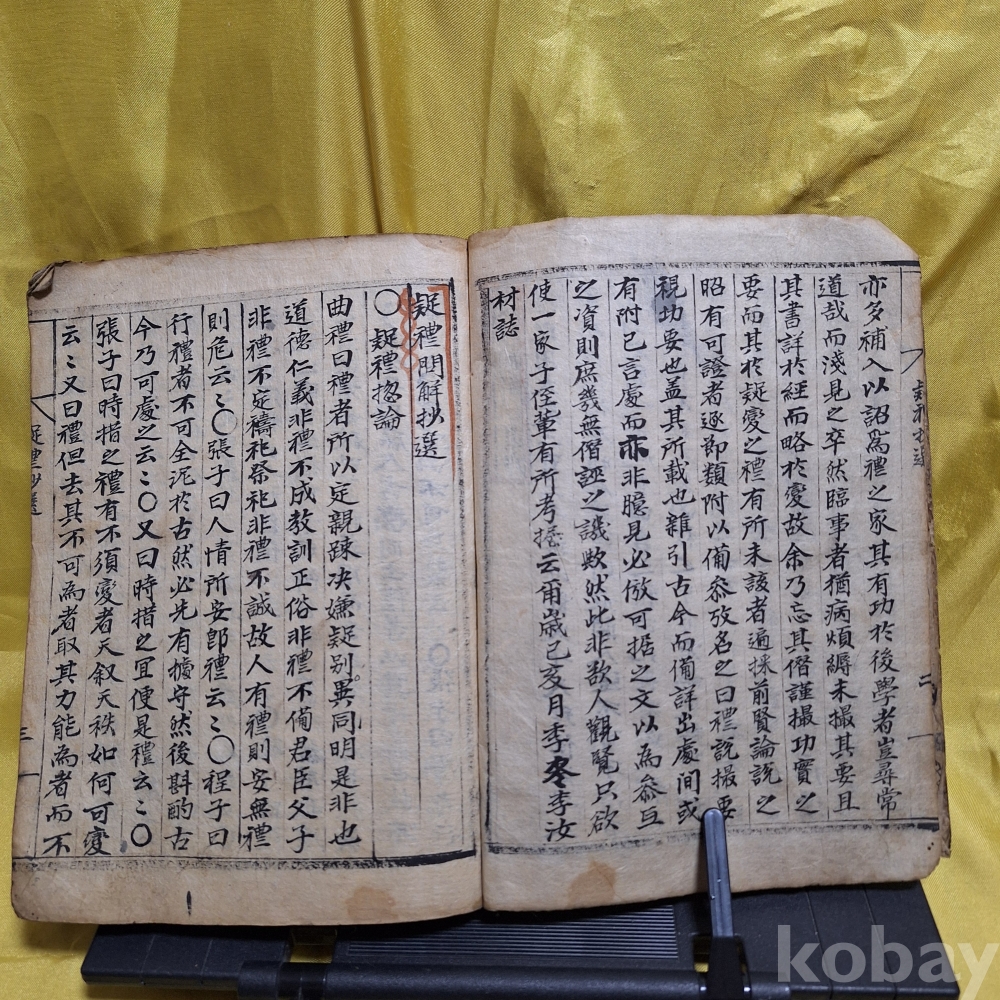 亦多補入以詔為禮之家其有功於後學者豈尋常
道哉而淺見之卒然臨事者猶病煩縟未撮其要且
其書詳於經而略於變故余乃忘其僭謹撮功實之
要而其於疑變之禮有所未該者遍採前賢論說之
昭有可證者逐節類附以備叅攷名之曰禮說撮要
視功要也盖其所載也雜引古今而備詳出處間或
有附己言處而亦非臆見必倣可据之文以為叅互
之資則庶幾無僭誣之譏歟然此非欲人觀覽只欲
使一家子侄輩有所考據云爾歲己亥月季冬李汝
材誌
疑禮問解抄選
○疑禮揔論
曲禮曰禮者所以定親踈决嫌疑別異同明是非也
道德仁義非禮不成教訓正俗非禮不備君臣父子
非禮不定禱祀祭祀非禮不誠故人有禮則安無禮
則危云〻○張子曰人情所安卽禮云〻○程子曰
行禮者不可全泥於古然必先有據守然後斟酌古
今乃可處之云〻○又曰時措之宜便是禮云〻○
張子曰時措之禮有不須變者天叙天秩如何可變
云〻又曰禮但去其不可為者取其力能為者而不
疑禮抄選
三
kobay